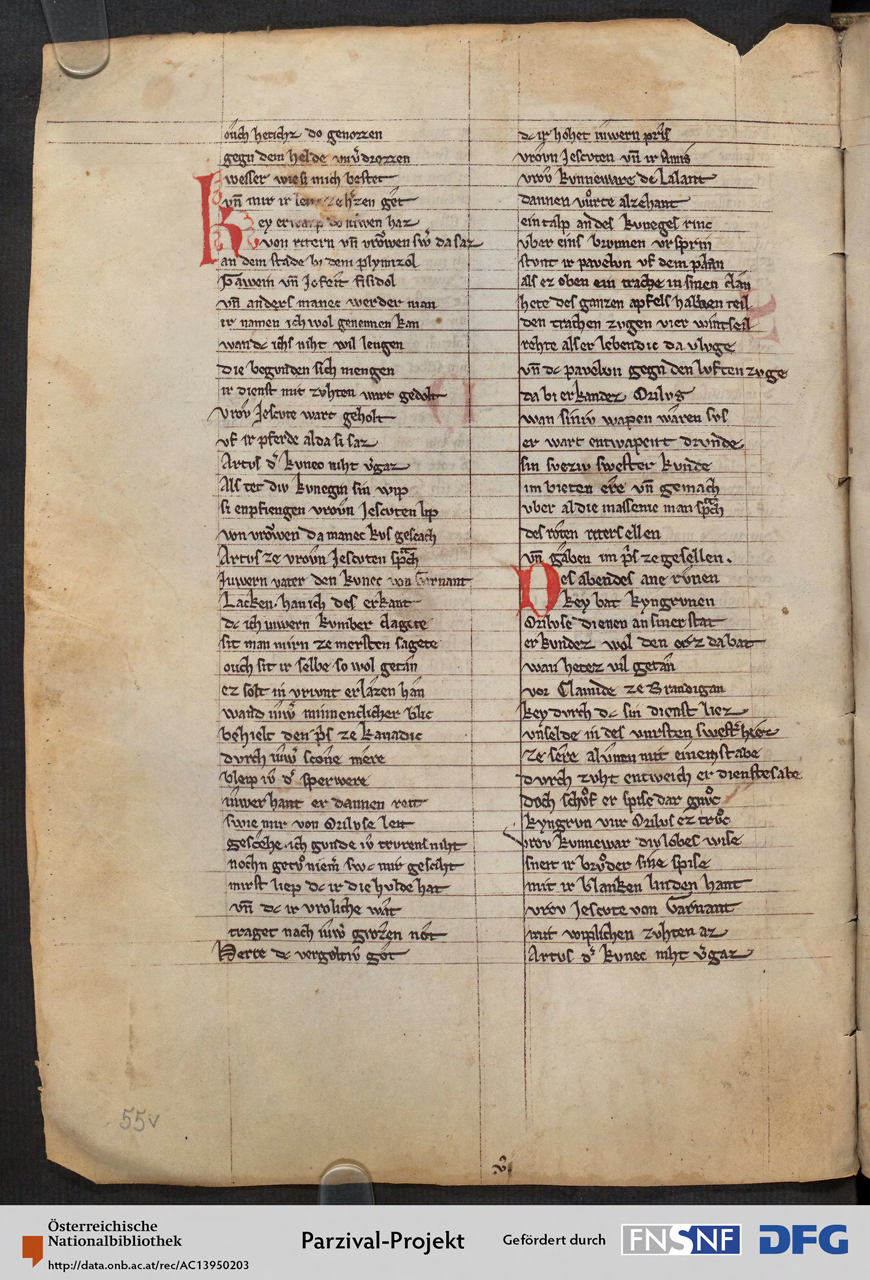 ouch hetichz do genozzen
gegn dem helde unv̄drozzen
weſſer wieſi mich beſtet
vn̄ mir ir zehꝛzen get
ey erwarp do niwen haz
von rittern vn̄ vrowen ſwˢ da ſaz
an dem ſtade bi dem plymizol
Gawein vn̄ Jofreit fiſidol
vn̄ anders manec werder man
ir namen ich wol genennen kan
wande ichſ niht wil lengen
die begunden ſich mengen
ir dienſt mit zvhten wart gedolt
vrov Jeſcvte wart geholt
vf ir pferde alda ſi ſaz
Artvs dˢ kvnec niht v̄gaz
Als tet div kvnegin ſin wip
ſi enpfiengen vrovn Jeſcvten lip
von vrowen da manec kvs geſcach
Artvs ze vrovn Jeſcvten ſpᵃch
Juwern vater den kvnec von Garnant
Lacken han ich des erkant
dc ich iuwern kvmber clagete
ſit man mirn ze merſten ſagete
ouch ſit ir ſelbe ſo wol getan
ez ſolt in vrivnt erlazen han
wand iuwˢ minnenclicher blic
behielt den pˢs ze kanadic
dvrch iuwˢ ſcone mere
bleip iv dˢ ſperwere
iuwer hant er dannen reit
ſwie mir von Orilvſe leit
geſcehe ich gvnde iv trvrens niht
noch getvͦ niemˢ ſwc mir geſciht
mirſt liep dc ir die hvlde hat
vn̄ dc ir vroliche wat
traget nach iuwˢ grozen not
Herre dc vergolt iv got
dc ir hohet iuwern pris
vrovn Jeſcvten vn̄ ir Amis
vrov kvnneware de Lalant
dannen vuͦrte alzehant
einſalp an des kvneges rinc
vber eins brvnnen vrſprin
ſtvnt ir pavelvn vf dem plan
als ez oben ein trache in ſinen clan
hete des ganzen apfels halben teil
den trachen zvgen vier wintſeil
rehte alſ er lebendic da vlvge
vn̄ dc pavelvn gegn den lvften zvge
da bi erkandez Orilvs
wan ſiniv wapen waren ſvs
er wart entwapent drvnde
ſin ſvezıv ſweſter kvnde
im bieten ere vn̄ gemach
vber al die maſſenie man ſpᵃch
des roten riters ellen
vn̄ gaben im pˢs ze geſellen.
Des abendes ane rvnen
key bat kyngrvnen
Orilvſe dienen an ſiner ſtat
er kvndez wol den erz da bat
wan hetez vil getan
vor Clamide ze Brandigan
key dvrch dc ſin dienſt liez
vnſelde in des vurſten ſweſtˢ hiez
ze ſere alvnen mit einem ſtabe
dvrch zvht entweich er dienſtes abe
doch ſchvͦf er ſpiſe dar gnvͦc
kyngrvn vur Orilvs ez trvͦc
vrov kvnnewar div lobes wiſe
ſneit ir brvͦder ſine ſpiſe
mit ir blanken linden hant
vrov Jeſcvte von Garnant
mit wiplichen zvhten az
Artvs dˢ kvnec niht v̄gaz
55v
Österreichische
Nationalbibliothek
http://data.onb.ac.at/rec/AC13950203
Parzival-Projekt
Gefördert durch
FNSNF
DFG